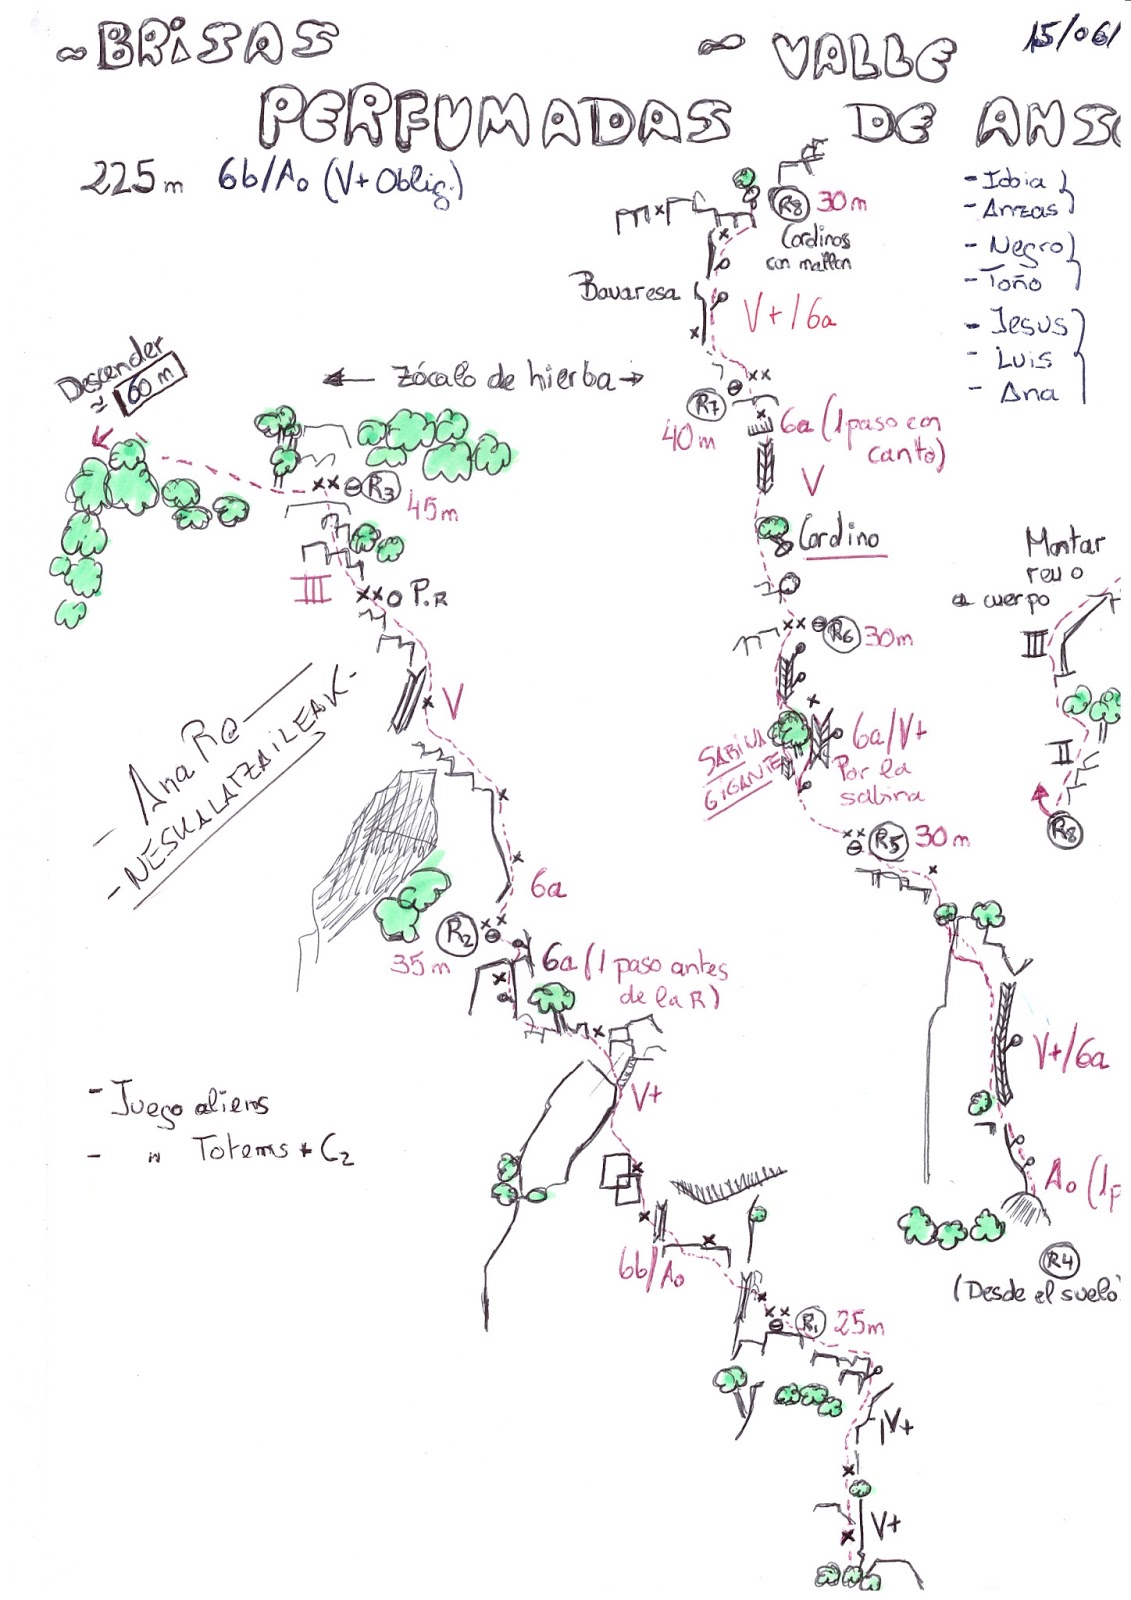 ~BRISAS
PERFUMADAS
~ VALLE
DE ANSO
15/06/
225m 6b/A0 (V+ Oblig.)
- Idoia
- Anzas
- Negro
- Toño
- Jesus
- Luis
- Ana
R8 30m
Cordinos
con maillon
Bavaresa
V+/6a
Descender
≃ 60 m
← Zócalo de hierba →
R7
40m
6a (1 paso con
canto)
V
R3
45m
Cordino
III
P.R
R6 30m
Montar
reu o
a cuerpo
III
II
R8
V
SABINA
GIGANTE
6a/V+
Por la
sabina
Ana Re
- NESKALATZAILEAK -
R5 30m
6a
R2
35m
6a (1 paso antes
de la R)
V+/6a
V+
- Juego aliens
- " Totems + C2
A0 (1p
6b/A0
R4
(Desde el suelo)
R1 25m
IV+
V+